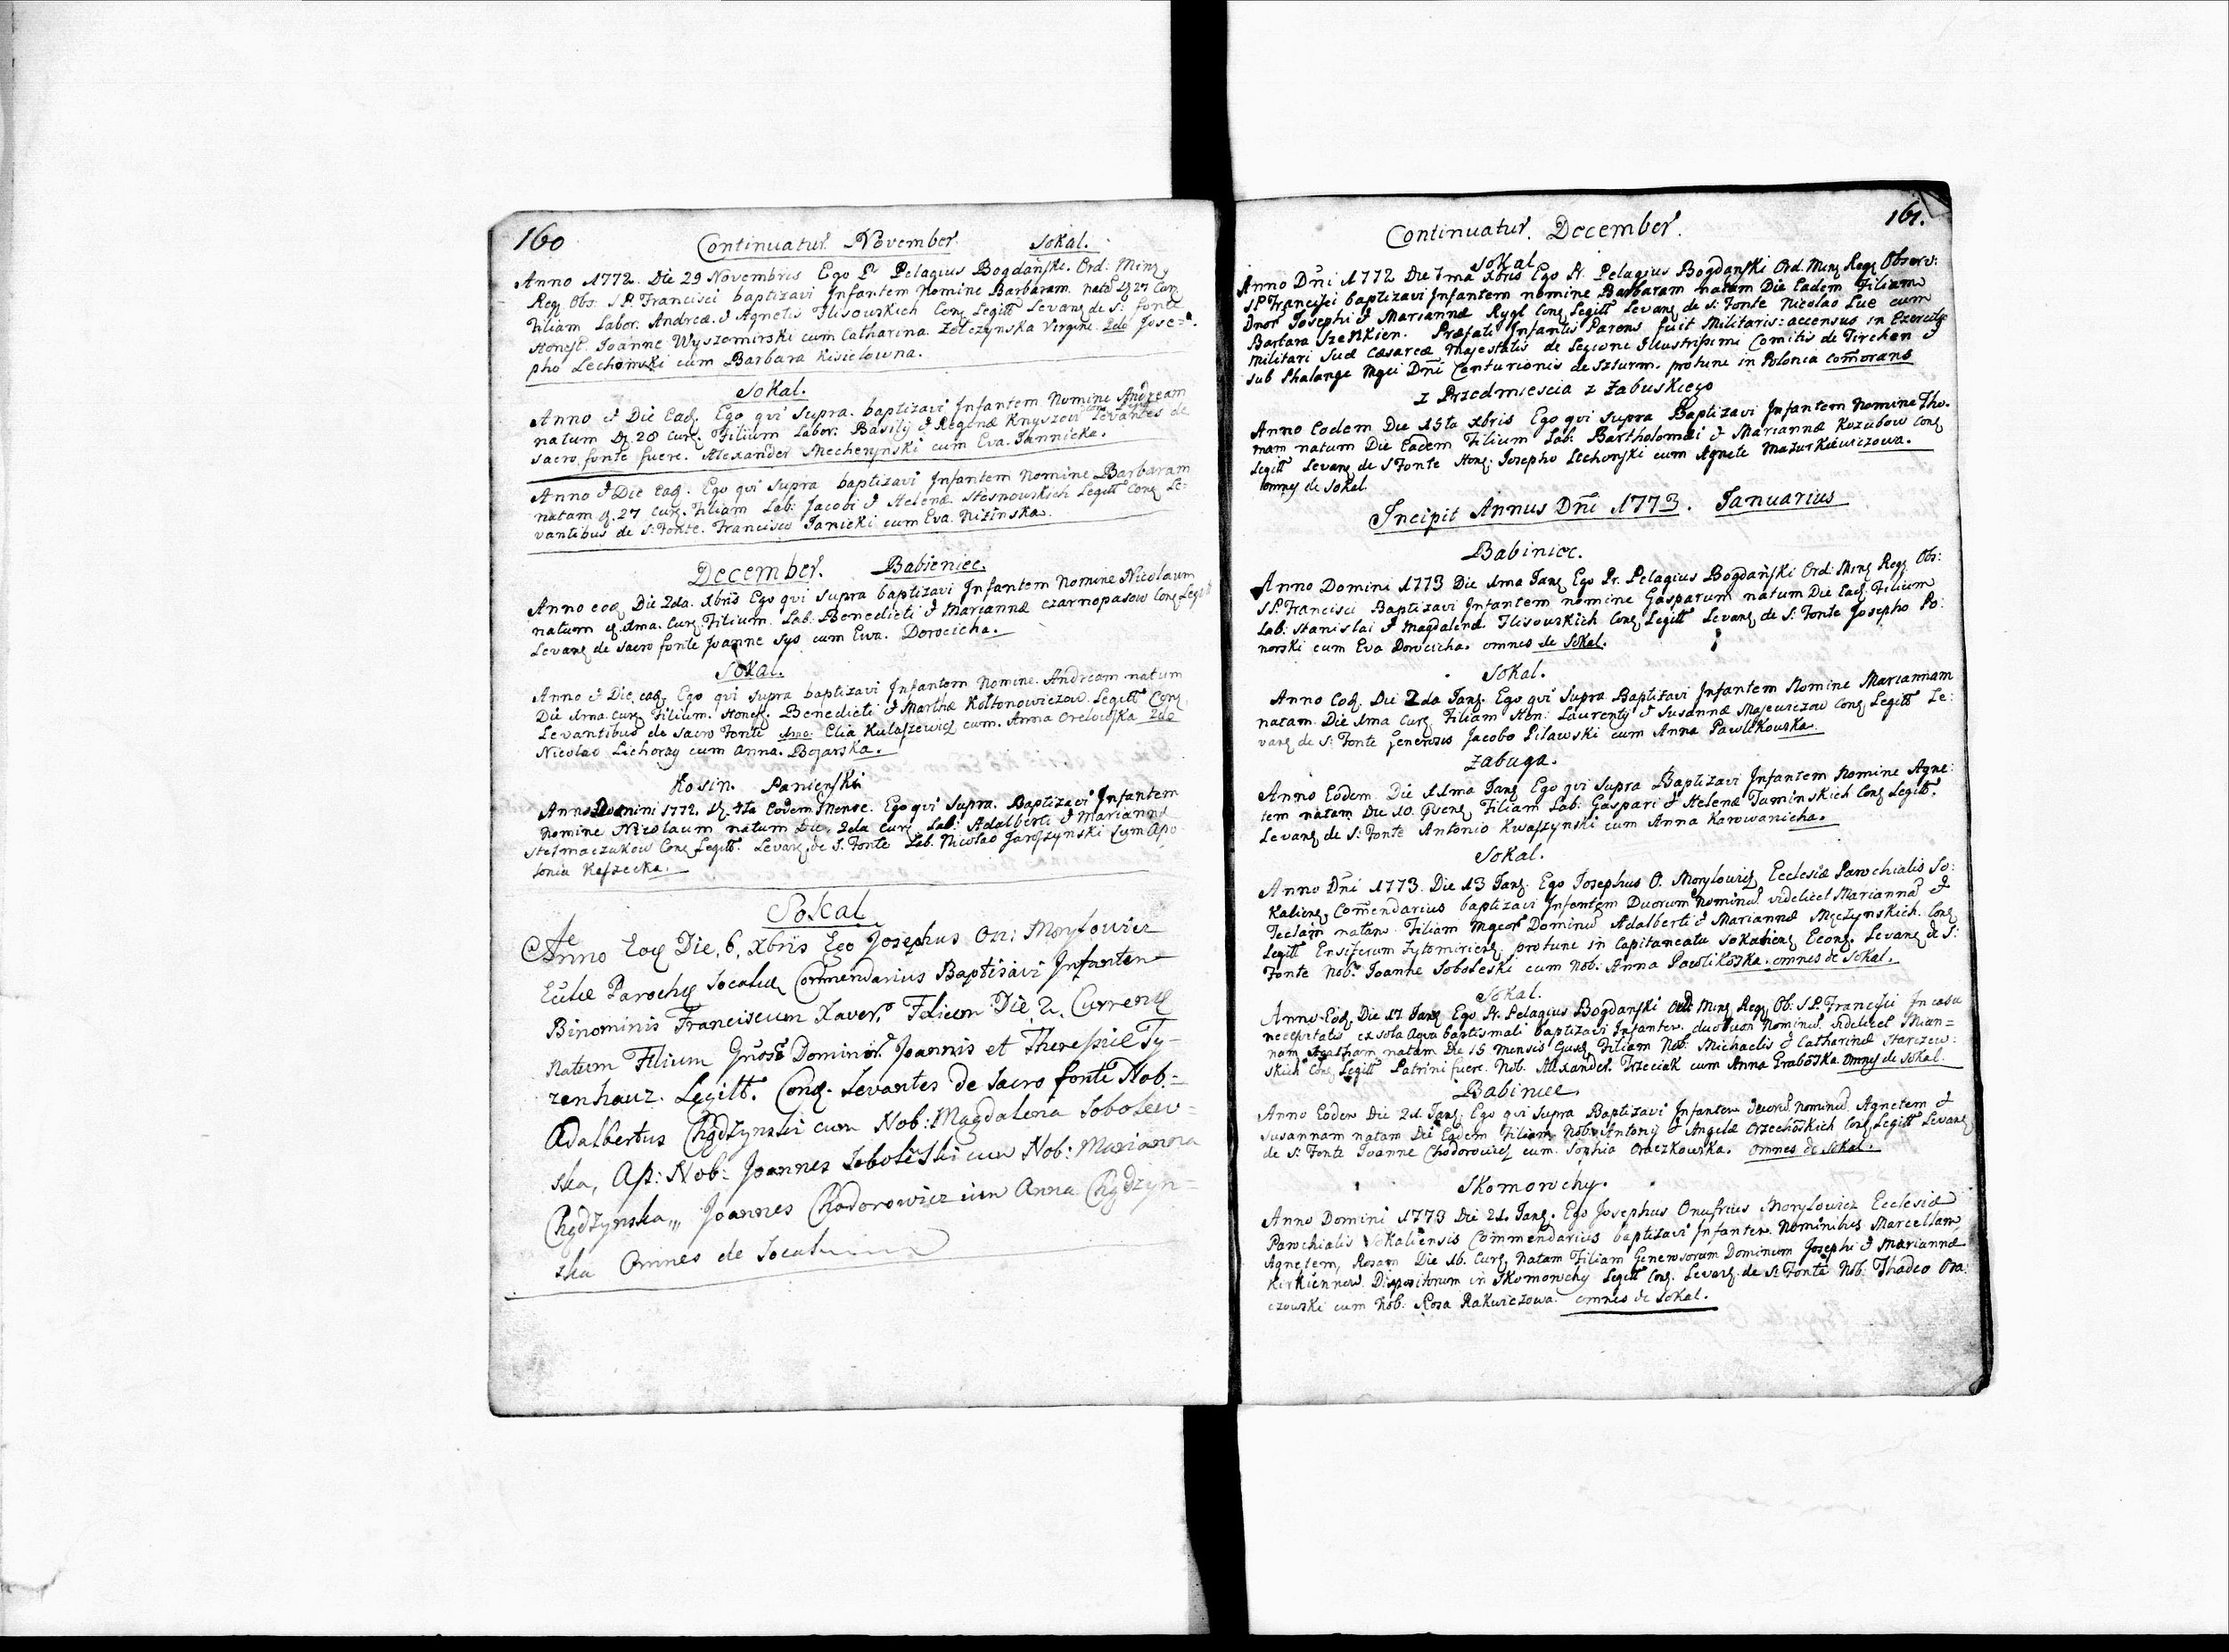 160
Continuatur. November. Sokal.
Anno 1772. Die 29 Novembris Ego Pr Pelagius Bogdański. Ord: Minz
Reg Obs: S.P. Francisci baptizavi Infantem Nomine Barbaram. nata 27 Cur.
Filiam Labor. Andreæ & Agnetis Ilisowskich Conz Legitt Levanz de S: fonte
Honest. Joanne Wyszomirski cum Catharina Zołczynska Virgine. 2do Jose=
pho Lechowski cum Barbara Kisielowna.
Sokal.
Anno & Die Eadz. Ego qvi Supra. baptizavi Infantem Nomine Andream
natum 28 curz. Filium Labor: Basilij & Reginæ Knyszow conz Levantes de
sacro fonte fuere. Alexander Mecherynski cum Eva Jannicka.
Anno & Die Eadz. Ego qvi supra baptizavi Infantem Nomine Barbaram
natam 27 curz. Filiam Lab: Jacobi & Helenæ Stosnowskich Legitt Conz Le=
vantibus de S: Fonte. Francisco Janicki cum Eva Nizinska.
December. Babieniec.
Anno eodz Die 2da. Xbris Ego qvi supra baptizavi Infantem Nomine Nicolaum
natum 1ma. Curz Filium. Lab: Benedicti & Mariannæ czarnopasow Conz Legitt
Levanz de sacro fonte Joanne Sys cum Eva. Dorocicha.
Sokal.
Anno & Die eadz Ego qvi supra baptizavi Infantem Nomine. Andream natum
Die 1ma curz Filium. Honest. Benedicti & Marthæ Kołtonowiczow Legitt Conz
Levantibus de Sacro Fonte 1mo: Elia Kulaszewicz cum Anna Orelowska 2do
Nicolao Lichoray cum Anna. Bojarska.
Kosin. Panienski
Anno Domini 1772. 4ta Eodem Mense. Ego qvi Supra. Baptizavi Infantem
Nomine Nicolaum natum Die 2da curz Lab: Adalberti & Mariannæ
Stelmaczukow Conz Legitt. Levanz de S. Fonte Lab. Nicolao Jaroszynski Cum Apo
lonia Kaszecka.
Sokal
Anno Eoq Die, 6, Xbris Ego Josephus On: Moryłowicz
Eccliæ Parochz Socaliæ Commendarius Baptisavi Infantem
Binominis Franciscum Xaver. Felicem Die 2. Currenz
Natum Filium Gnose Dominor. Joannis et Theressiæ Ty-
zenhauz. Legitt. Conz. Levantes de Sacro fonte Nob.=
Adalbertus Chądzynski cum Nob: Magdalena Sobolew=
ska, Ass: Nob: Joannes Soboleski cum Nob: Marianna
Chądzynska,, Joannes Chodorowicz cum Anna Chądzyn=
ska Omnes de Socal
161.
Continuatur. December.
Sokal
Anno Dni 1772 Die 7ma Xbris Ego Pr. Pelagius Bogdanski Ord. Minz Regz Observ:
S.P. Francisci baptizavi Infantem nomine Barbaram natam Die Eadem Filiam
Dnor Josephi & Mariannæ Rygl Conz Legitt Levanz de S: Fonte Nicolao Lue cum
Barbara Szenkien. Præfati Infantis Parens fuit Militaris: accensus in Exercitu
Militari Suæ Cæsareæ Majestatis de Legione Illustrissimi Comitis de Tirchen &
sub Phalange Mgci Dni Centurionis de Szturm. protunc in Polonia Comorans
z Przedmiescia z Zabuskiego
Anno Eodem Die 15ta Xbris Ego qvi supra Baptizavi Infantem Nomine Tho.
mam natum Die Eadem Filium Lab: Bartholomæi & Mariannæ Kozubow Conz
Legitt Levanz de S Fonte Honz: Josepho Lechowski cum Agnete Mazurkiewiczowa.
omnes de Sokal.
Incipit Annus Dni 1773. Januarius
Babiniec.
Anno Domini 1773 Die 1ma Janz Ego Pr. Pelagius Bogdański Ord: Minz Regz Obs:
S.P. Francisci Baptizavi Infantem nomine Gasparum natum Die Eadz Filium
Lab: Stanislai & Magdalenæ. Ilisowskich Conz Legitt Levanz de S: Fonte Josepho Po:
norski cum Eva Dorocicha. omnes de Sokal.
Sokal.
Anno Eodz. Die 2da Janz. Ego qvi Supra Baptizavi Infantem Nomine Mariannam
natam Die 1ma Curz Filiam Hon: Laurentij & Susannæ Majewiczow Conz Legitt Le:
vanz de S: Fonte Generosus Jacobo Pilawski cum Anna Pawlikowska.
Zabuga.
Anno Eodem Die 11ma Janz Ego qvi Supra Baptizavi Infantem Nomine Agne:
tem natam Die 10. Filiam Lab. Gaspari & Helenæ Taminskich Conz Legitt.
Levanz de S: Fonte Antonio Kwaszynski cum Anna Karwanicha.
Sokal.
Anno Dni 1773. Die 13 Janz. Ego Josephus O. Morylowicz Ecclesiæ Parochialis So:
kaliens. Comendarius baptizavi Infantem Duorum Nominu videlicet Marianna &
Teclam natam Filiam Mgcor Dominu Adalberti & Mariannæ Męczynskich. Conz
Legitt Ensiferum Zytomiriens. protunc in Capitaneatu Sokaliens Econz. Levanz de S:
Fonte Nob: Joanne Soboleski cum Nob: Anna Pawlikoska. omnes de Sokal.
Sokal.
Anno Eodz Die 17 Janz Ego Pr. Pelagius Bogdanski Ord Minz Regz Ob: S.P. Francisci In casu
necessitatis ex sola Aqua baptismali baptizavi Infantem. duorum Nominu. videlicet Marian=
nam Agatham natam Die 15 Mensis Filiam Nob. Michaelis & Catharinæ Starzew:
skich Conz Legitt Patrini fuere. Nob. Alexander Trzeciak cum Anna Graboska omnes de Sokal.
Babiniec
Anno Eodem Die 21 Janz. Ego qvi supra Baptizavi Infantem duoru nominu. Agnetem &
Susannam natam Die Eadem Filiam Nob: Antonij & Angelæ Orzechoskich Conz Legitt Levanz
de S: Fonte Joanne Chodorowicz cum Sophia Oraczkowska. omnes de Sokal.
Skomorochy.
Anno Domini 1773 Die 21. Janz. Ego Josephus Onufrius Morylowicz Ecclesiæ
Parochialis Sokaliensis Commendarius baptizavi Infantem Nominibus Marcellam
Agnetem, Rosam Die 16. Curz Natam Filiam Generosorum Dominum Josephi & Mariannæ
Kirkiennow. Dispositorum in Skomorochy Legitt Conz. Levanz de S: Fonte Nob: Thadeo Ora:
czowski cum Nob: Rosa Rakwiczowa. omnes de Sokal.